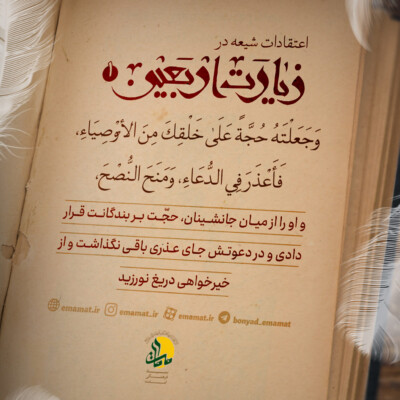 اعتقادات شیعه در
زیارت اربعین ۱
وَجَعَلْتَهُ حُجَّةً عَلَىٰ خَلْقِكَ مِنَ الْأَوْصِيَاءِ،
فَأَعْذَرَ فِي الدُّعَاءِ، وَمَنَحَ النُّصْحَ،
و او را از میان جانشینان، حجّت بر بندگانت قرار
دادی و در دعوتش جای عذری باقی نگذاشت و از
خیرخواهی دریغ نورزید
emamat.ir emamat_ir emamat_ir bonyad_emamat